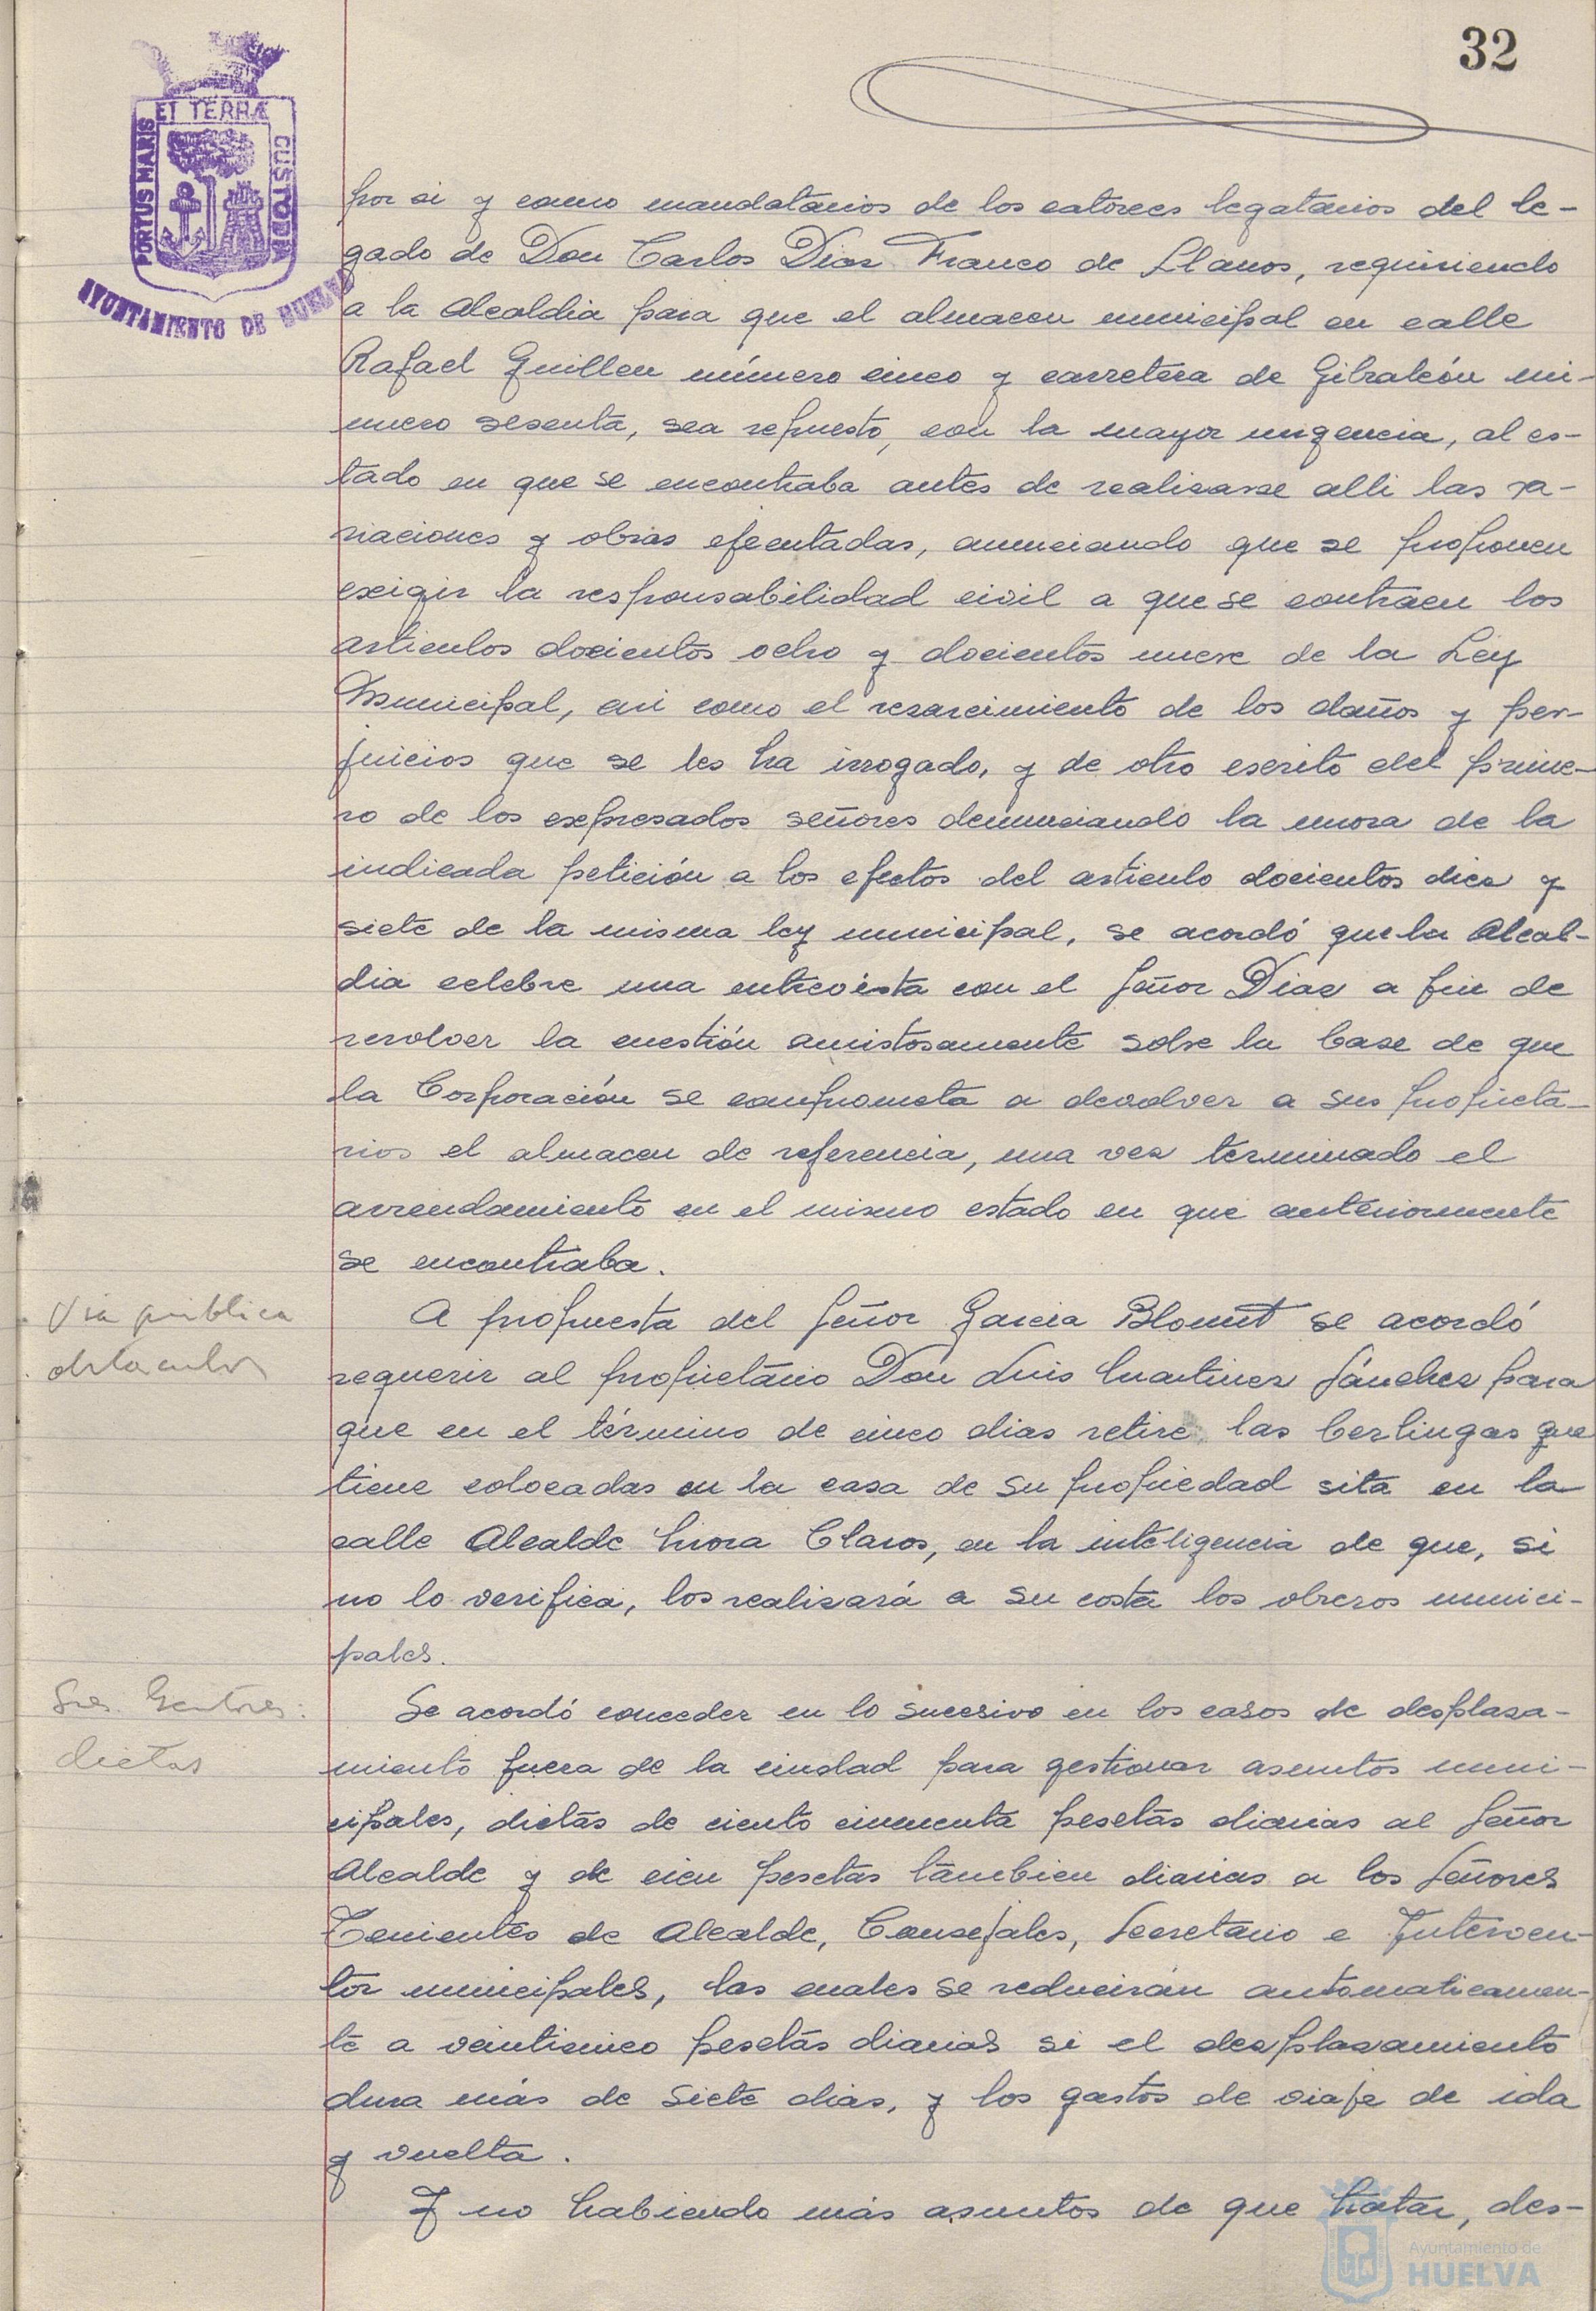 32
ET TERRÆ
PORTUS MARIS
CUSTODIA
AYUNTAMIENTO DE HUELVA
por si y como mandatarios de los catorces legatarios del le-
gado de Don Carlos Diaz Franco de Llanos, requiriendo
a la Alcaldia para que el almacen municipal en calle
Rafael Guillen número cinco y carretera de Gibraleón nú-
mero sesenta, sea repuesto, con la mayor urgencia, al es-
tado en que se encontraba antes de realizarse alli las va-
riaciones y obras efectuadas, anunciando que se proponen
exigir la responsabilidad civil a que se contraen los
articulos docientos ocho y docientos nueve de la Ley
Municipal, asi como el resarcimiento de los daños y per-
juicios que se les ha irrogado, y de otro escrito del prime-
ro de los expresados señores denunciando la mora de la
indicada petición a los efectos del articulo docientos diez y
siete de la misma ley municipal, se acordó que la Alcal-
dia celebre una entrevista con el Señor Diaz a fin de
resolver la cuestión amistosamente sobre la base de que
la Corporación se comprometa a devolver a sus propieta-
rios el almacen de referencia, una vez terminado el
arrendamiento en el mismo estado en que anteriormente
se encontraba.
Via publica
A propuesta del Señor Garcia Blount se acordó
requerir al propietario Don Luis Martinez Sánchez para
que en el término de cinco dias retire las berlingas que
tiene colocadas en la casa de su propiedad sita en la
calle Alcalde Mora Claros, en la inteligencia de que, si
no lo verifica, los realizará a su costa los obreros munici-
pales.
Sres. Gestores:
dietas
Se acordó conceder en lo sucesivo en los casos de desplaza-
miento fuera de la ciudad para gestionar asuntos muni-
cipales, dietas de ciento cincuenta pesetas diarias al Señor
Alcalde y de cien pesetas tambien diarias a los Señores
Tenientes de Alcalde, Consejales, Secretario e Interven-
tor municipales, las cuales se reducirán automaticamen-
te a veinticinco pesetas diarias si el desplazamiento
dura más de siete dias, y los gastos de viaje de ida
y vuelta.
Y no habiendo más asuntos de que tratar, des-
Ayuntamiento de
HUELVA